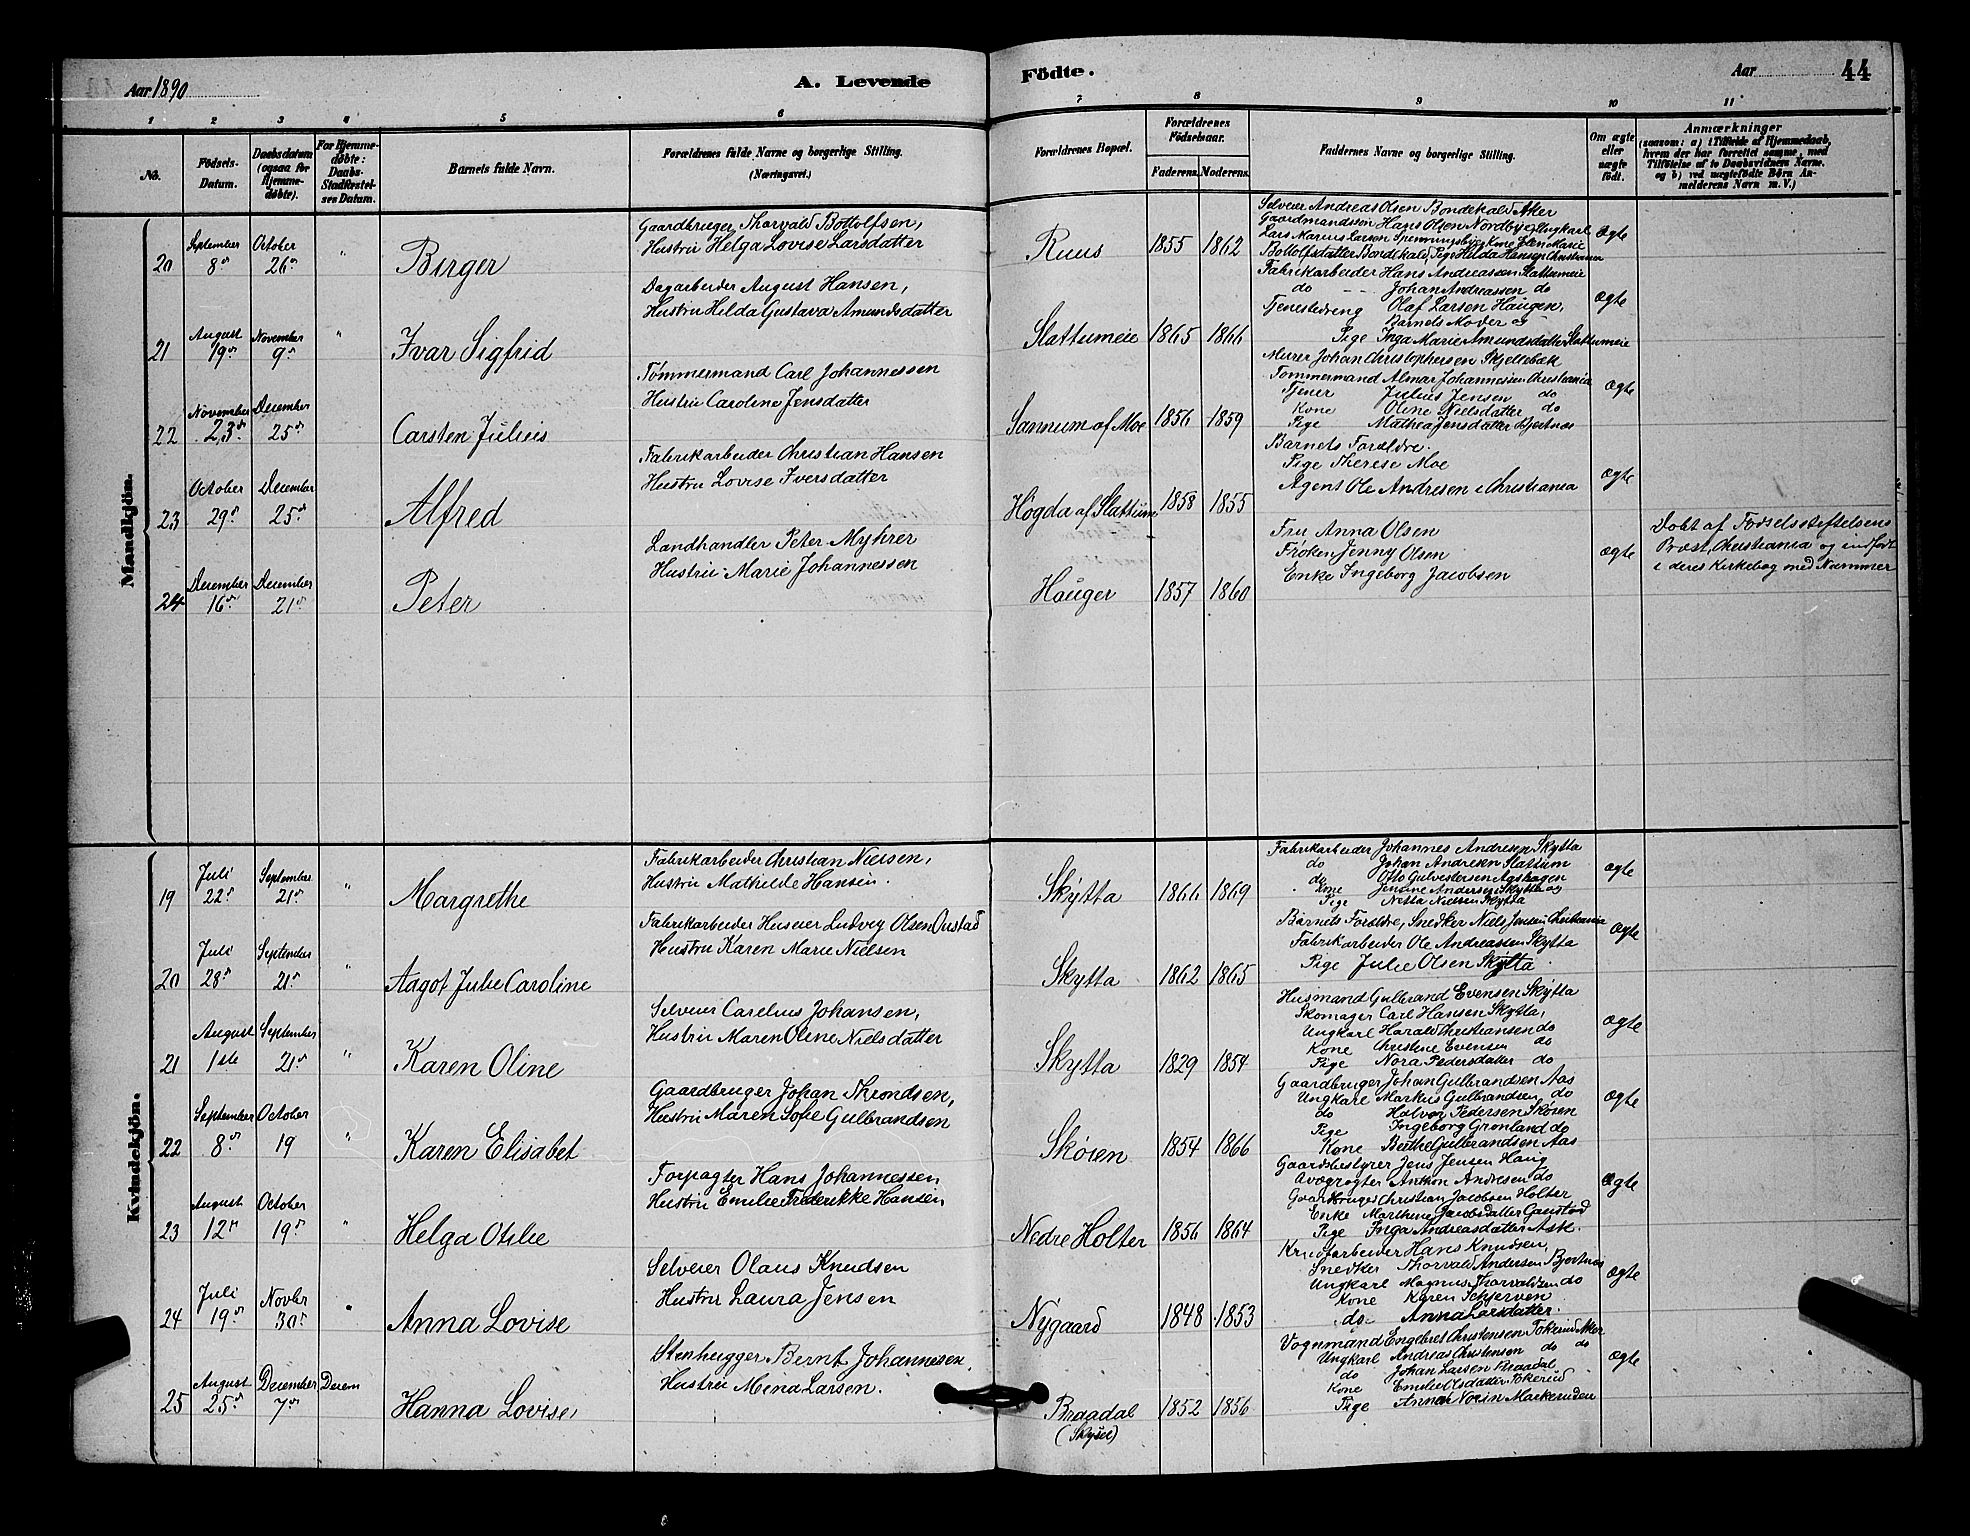 Aar 1890
A. Levende
Födte.
Aar
44
1 2 3 4 5 6 7 8 9 10 11
No.
Födsels-Datum.
Daabsdatum (ogsaa for Hjemme-döbte).
For Hjemme-döbte: Daabs-Stadfæstel-ses Datum.
Barnets fulde Navn.
Forældrenes fulde Navne og borgerlige Stilling. (Næringsvei.)
Forældrenes Bopæl.
Forældrenes Födselsaar.
Faderens. Moderens.
Faddernes Navne og borgerlige Stilling.
Om ægte eller uægte födt.
Anmærkninger
(saasom: a) i Tilfælde af Hjemmedaab, hvem der har forrettet samme, med Tilföielse af to Daabsvidners Navne, og b) ved uægtefödte Börn An-melderens Navn m. V.)
Mandkjön.
20 September 8de October 26de " Birger
Gaardbruger Thorvald Bottolfsen,
Hustru Helga Lovise Larsdatter
Ruus 1855 1862
Selveier Andreas Olsen Bondekald Aker
Gaardmandssön Hans Olsen Nordbye, Ungkarl
Lars Marius Larsen Spenningsbye, Kone Elen Marie
Bottolfsdatter Bondekald, Pige Hilda Hansen Christiania
Ægte
21 August 19de November 9de " Ivar Sigfrid
Dagarbeider August Hansen,
Hustru Hilda Gustava Amundsdatter
Slattumeie 1865 1866
Fabrikarbeider Hans Andreassen Slattumeie
do Johan Andreassen do
Tjenestedreng Olaf Larsen Haugen,
Barnets Moder og
Pige Inga Marie Amundsdatter Slattumeie
Ægte
22 November 23de December 25de Carsten Julius
Tømmermand Carl Johannessen
Hustru Caroline Jensdatter
Sannum af Moe 1856 1859
Murer Johan Christophersen Skjellebæk
Tømmermand Almar Johannesen Christiania
Tjener Julius Jensen do
Kone Oline Nielsdatter do
Pige Mathea Jensdatter Bjertnæs
Ægte
23 October 29de December 25de Alfred
Fabrikarbeider Christian Hansen
Hustru Lovise Iversdatter
Høgda af Slattum 1858 1855
Barnets Forældre.
Pige Therese Moe
Agent Ole Andresen i Christiania
Ægte
24 December 16de December 21de Peter
Landhandler Peter Myhrer
Hustru Marie Johannessen
Hauger 1857 1860
Fru Anna Olsen
Frøken Jenny Olsen
Enke Ingeborg Jacobsen
Ægte
Døbt af Fødselsstiftelsens
Præst, Christiania og indført
i deres Kirkebog med Nummer
Kvindekjön.
19 Juli 22de September 21de " Margrethe
Fabrikarbeider Christian Nielsen,
Hustru Mathilde Hansen.
Skytta 1866 1869
Fabrikarbeider Johannes Andresen Skytta
do Johan Andresen Slattum
do Otto Gulvestersen Aashagen
Kone Jensine Andersen Skytta og
Pige Netta Nielsen Skytta
Ægte
20 Juli 28de September 21de " Aagot Julie Caroline
Fabrikarbeider Huseier Ludvig Olsen Onstad
Hustru Karen Marie Nielsen
Skytta 1862 1865
Barnets Forældre, Snedker Niels Jensen Christiania
Fabrikarbeider Ole Andreassen Skytta
Pige Julie Olsen Skytta
Ægte
21 August 1ste September 21de " Karen Oline
Selveier Carelius Johansen,
Hustru Maren Oline Nielsdatter
Skytta 1829 1854
Husmand Gulbrand Evensen Skytta
Skomager Carl Hansen Skytta,
Ungkarl Harald Christiansen do
Kone Christine Evensen do
Pige Nora Pedersdatter do
Ægte
22 September 8de October 19 " Karen Elisabet
Gaardbruger Johan Throndsen,
Hustru Maren Sofie Gulbrandsen
Skøien 1854 1866
Gaardbruger Johan Gulbrandsen Aas
Ungkarl Markus Gulbrandsen do
do Halvor Pedersen Skøien
Pige Ingeborg Grønland do
Kone Berthe Gulbrandsen Aas
Ægte
23 August 12te October 19de " Helga Otilie
Forpagter Hans Johannessen
Hustru Emilie Frederikke Hansen
Nedre Holter 1856 1864
Gaardsbestyrer Jens Jensen Haug
Avlsrøgter Anthon Andresen do
Gaardbruger Christian Jacobsen Holter
Enke Marthine Jacobsdatter Gaustad
Pige Inga Andreasdatter Ask.
Ægte
24 Juli 19de Novbr 30de " Anna Lovise
Selveier Olaus Knudsen
Hustru Laura Jensen
Nygaard 1848 1853
Krudtarbeider Hans Knudsen,
Snedker Thorvald Andersen Bjertnæs
Ungkarl Magnus Thorvaldsen do
Kone Karen Schjerven
do Anna Larsdatter.
Ægte
25 August 25de December 7de Decem Hanna Lovise
Stenhugger Bernt Johannesen.
Hustru Mina Larsen.
Braadal (Skysæl) 1852 1856
Vognmand Engebret Christensen Tokerud Aker
Ungkarl Andreas Christensen do do
do Johan Larsen Braadal
Kone Emilie Olsdatter Tokerud
Pige Anna Noren Markeruden
Ægte